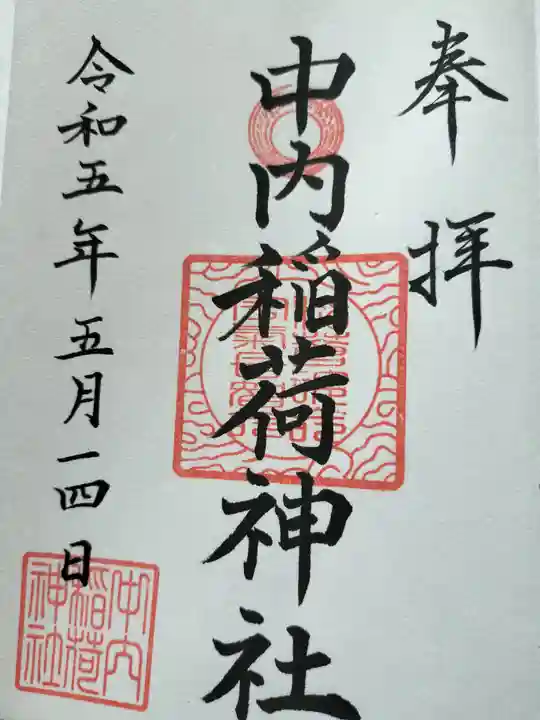 奉拝
中内稲荷神社
令和五年五月一四日
中内
稲荷
神社